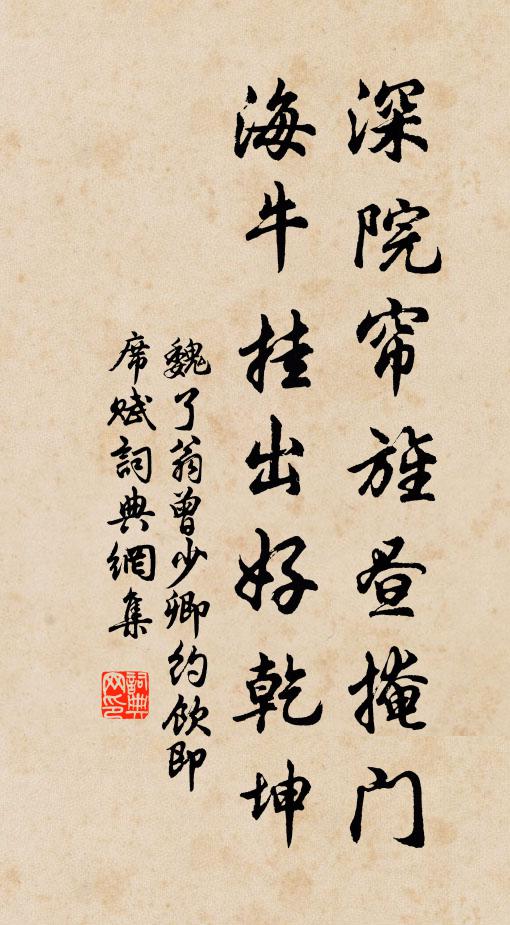 深院帘旌昼掩门
海牛挂出好乾坤
魏了翁曾少卿约饮即
席赋詞典網集
詞典网印